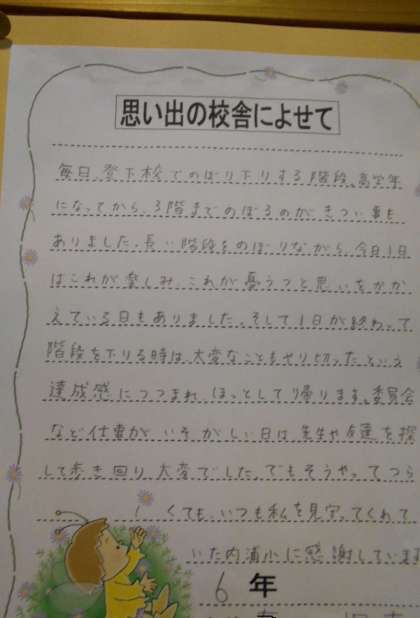 思い出の校舎によせて
毎日、登下校でのぼり下りする階段。高学年
になってから、3階までのぼるのが、きつい事も
ありました。長い階段をのぼりながら、今日1日
はこれが楽しみ、これが憂うつと思いをかか
えている日もありました。そして1日が終わって
階段を下りる時は大変なこともやり切ったという
達成感につつまれ、ほっとして帰ります。委員会
など仕事がいそがしい日は、先生や友達を探
して歩き回り、大変でした。でもそうやってつら
くても、いつも私を見守ってくれて
いた内浦小に感謝しています
6年